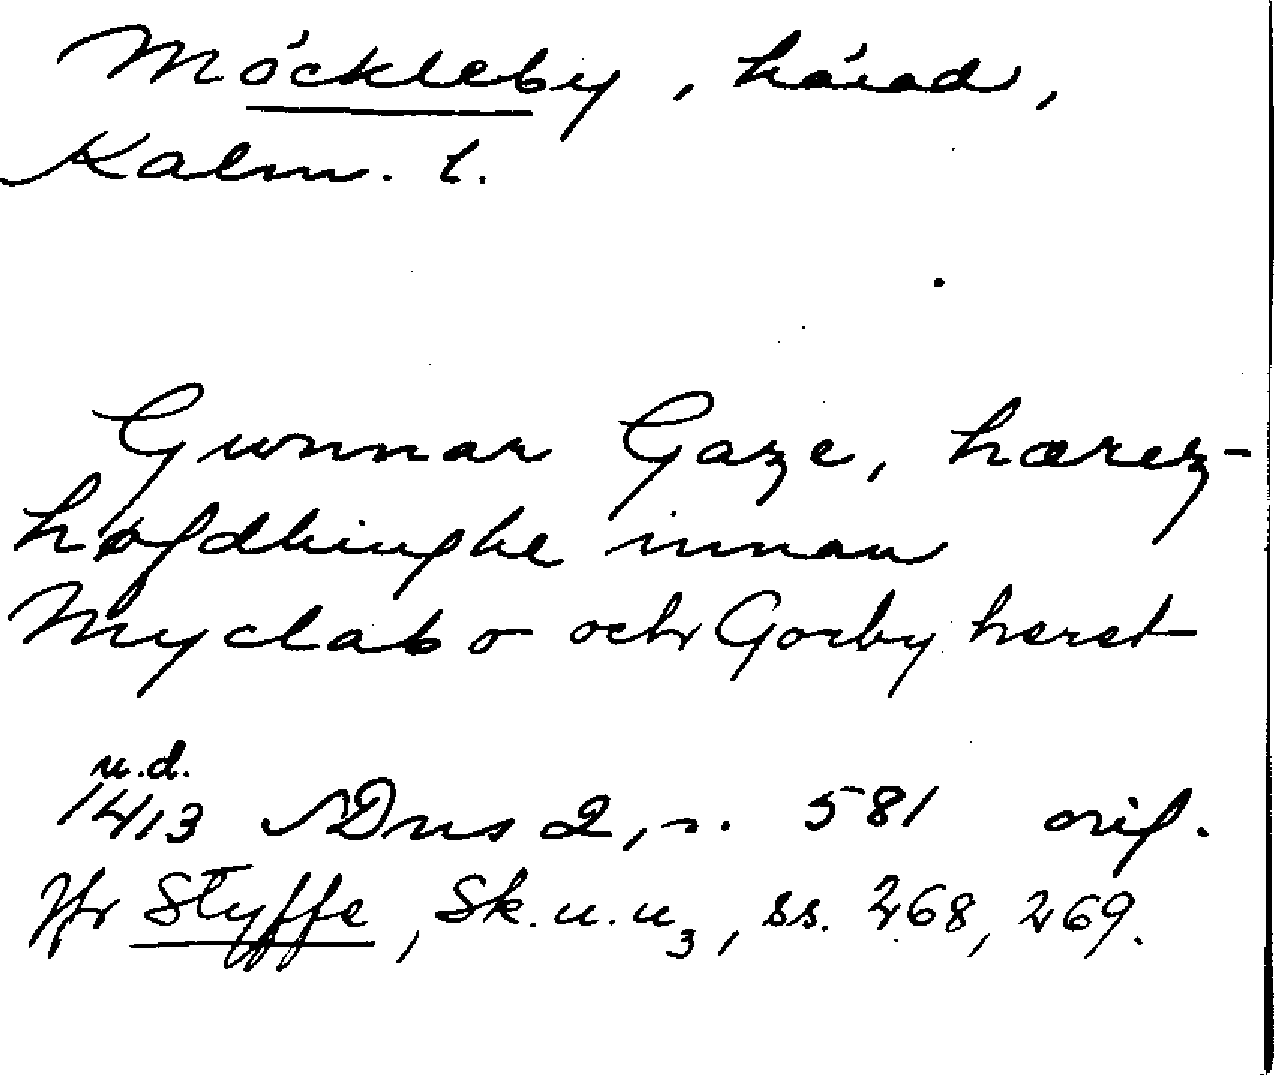 Möckleby, härad,
Kalm. l.
Gunnar Gaze, hærez-
høfdhinghe innan
Myclabo och Gorby heret
u.d.
1413 SDns 2, s. 581 orig.
Jfr Styffe, Sk.u.u3, ss. 268, 269.